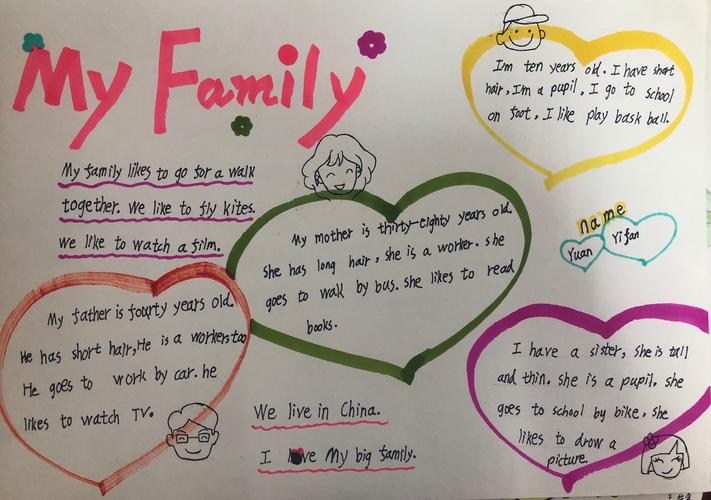 My Family
My family likes to go for a walk
together. We like to fly kites.
We like to watch a film.
I'm ten years old. I have short
hair, I'm a pupil, I go to school
on foot, I like play bask ball.
name
Yuan Yifan
My mother is thirty-eighty years old.
She has long hair, she is a worker. she
goes to walk by bus. she likes to read
books.
My father is fourty years old.
He has short hair, He is a workerstoo
He goes to work by car. he
likes to watch TV.
I have a sister, she is tall
and thin. she is a pupil. she
goes to school by bike, she
likes to drow a
picture.
We live in China.
I love My big family.